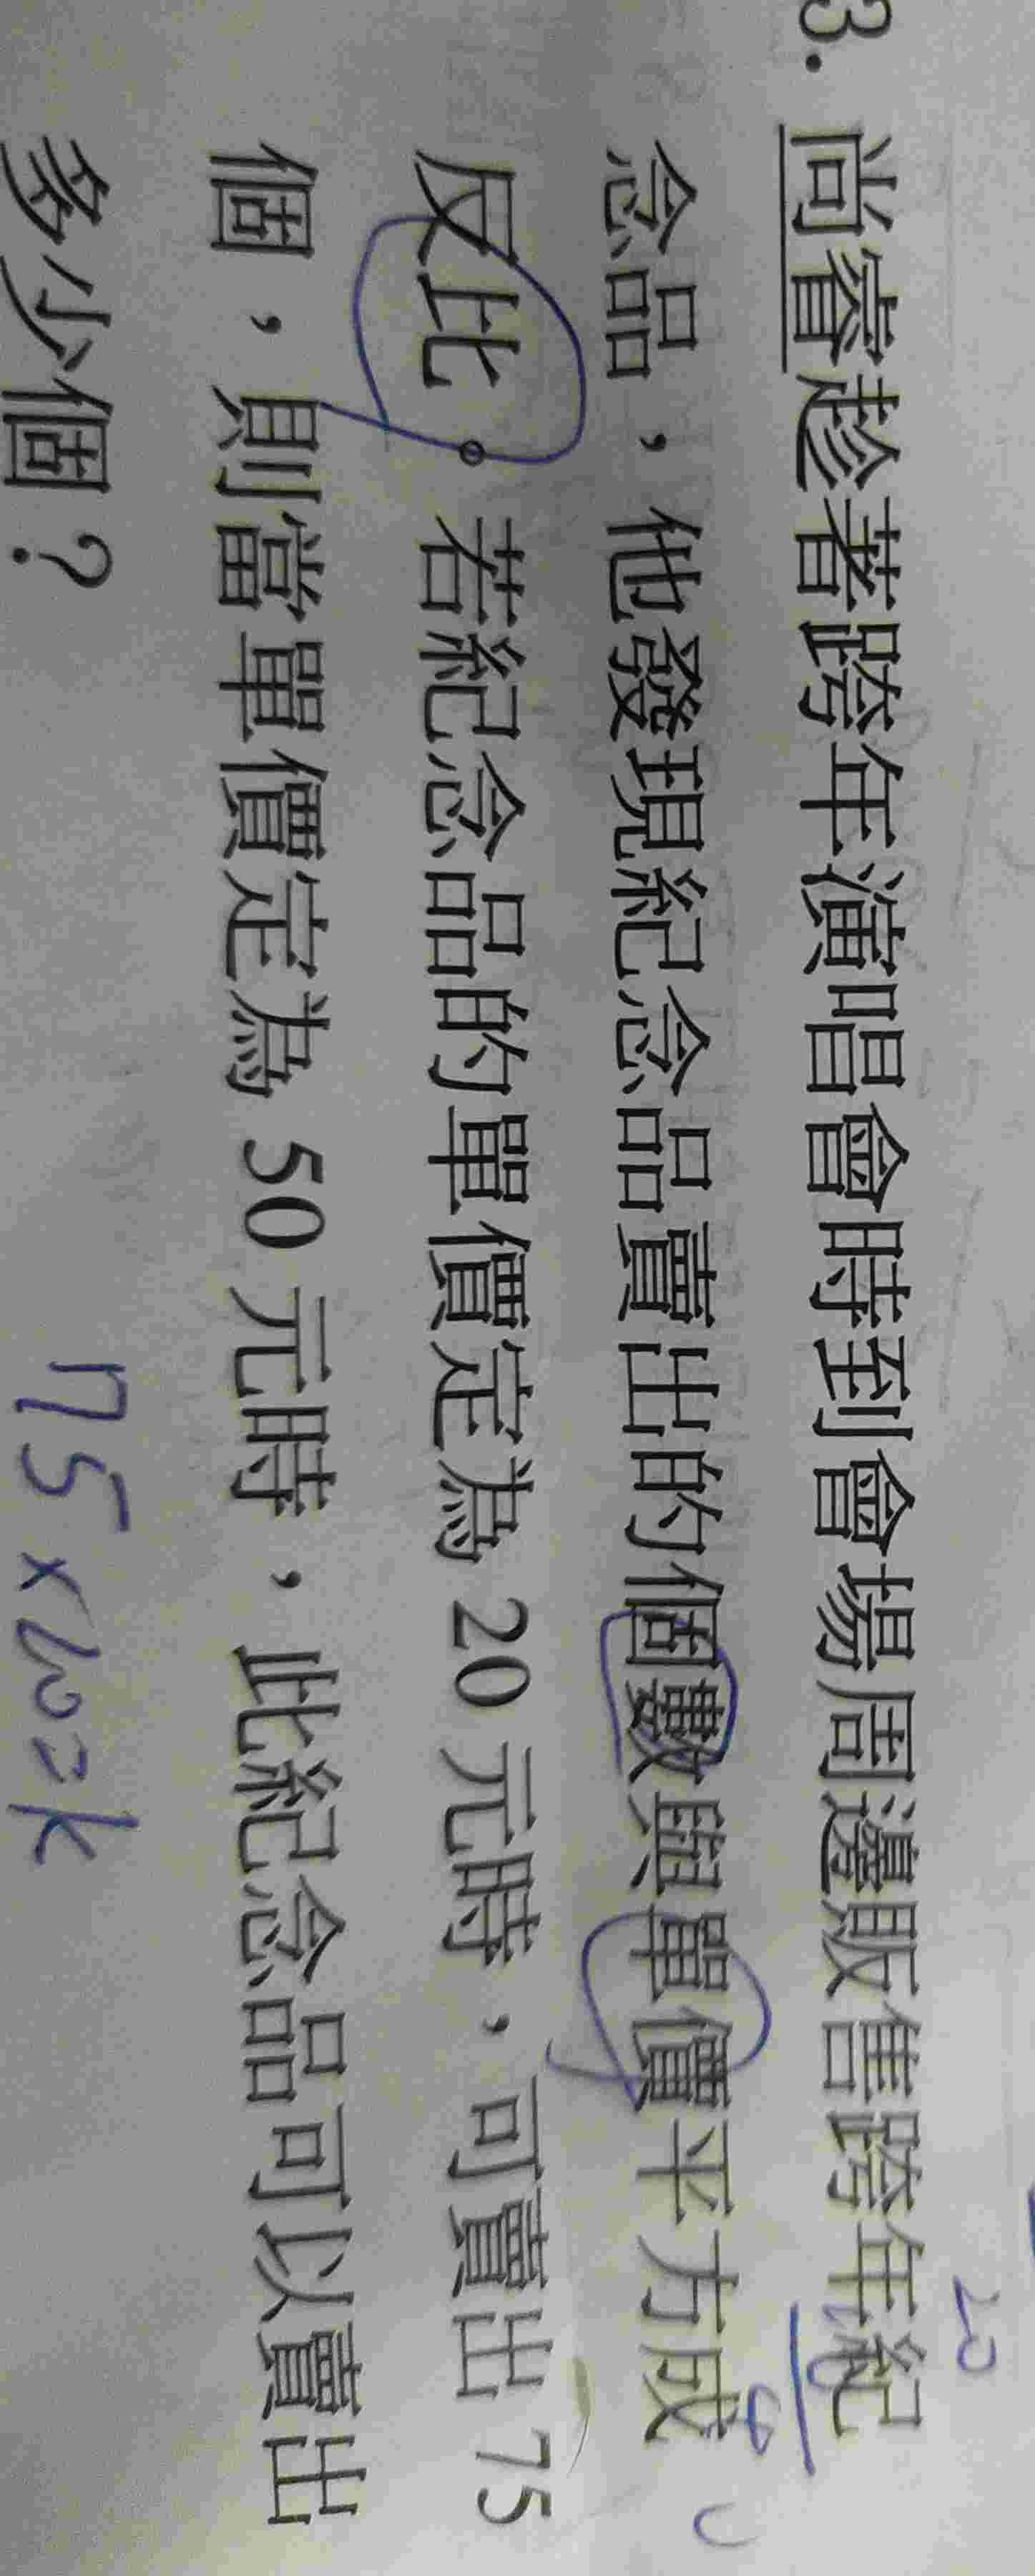 3. 尚睿趁著跨年演唱會時到會場周邊販售跨年紀
念品，他發現紀念品賣出的個數與單價平方成
反比。若紀念品的單價定為 20 元時，可賣出 75
個，則當單價定為 50 元時，此紀念品可以賣出
多少個？
20